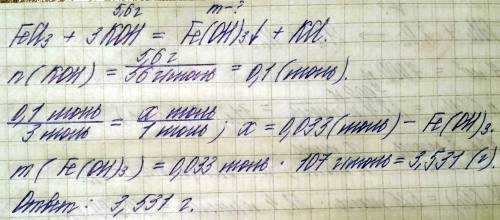 5,6г m-?
FeCl₃ + 3KOH = Fe(OH)₃↓ + KCl.
n(KOH) = 5,6 г / 56 г/моль = 0,1 (моль).
0,1 моль / 3 моль = x моль / 1 моль ; x = 0,033 (моль) – Fe(OH)₃
m(Fe(OH)₃) = 0,033 моль · 107 г/моль = 3,531 (г).
Ответ: 3,531 г.